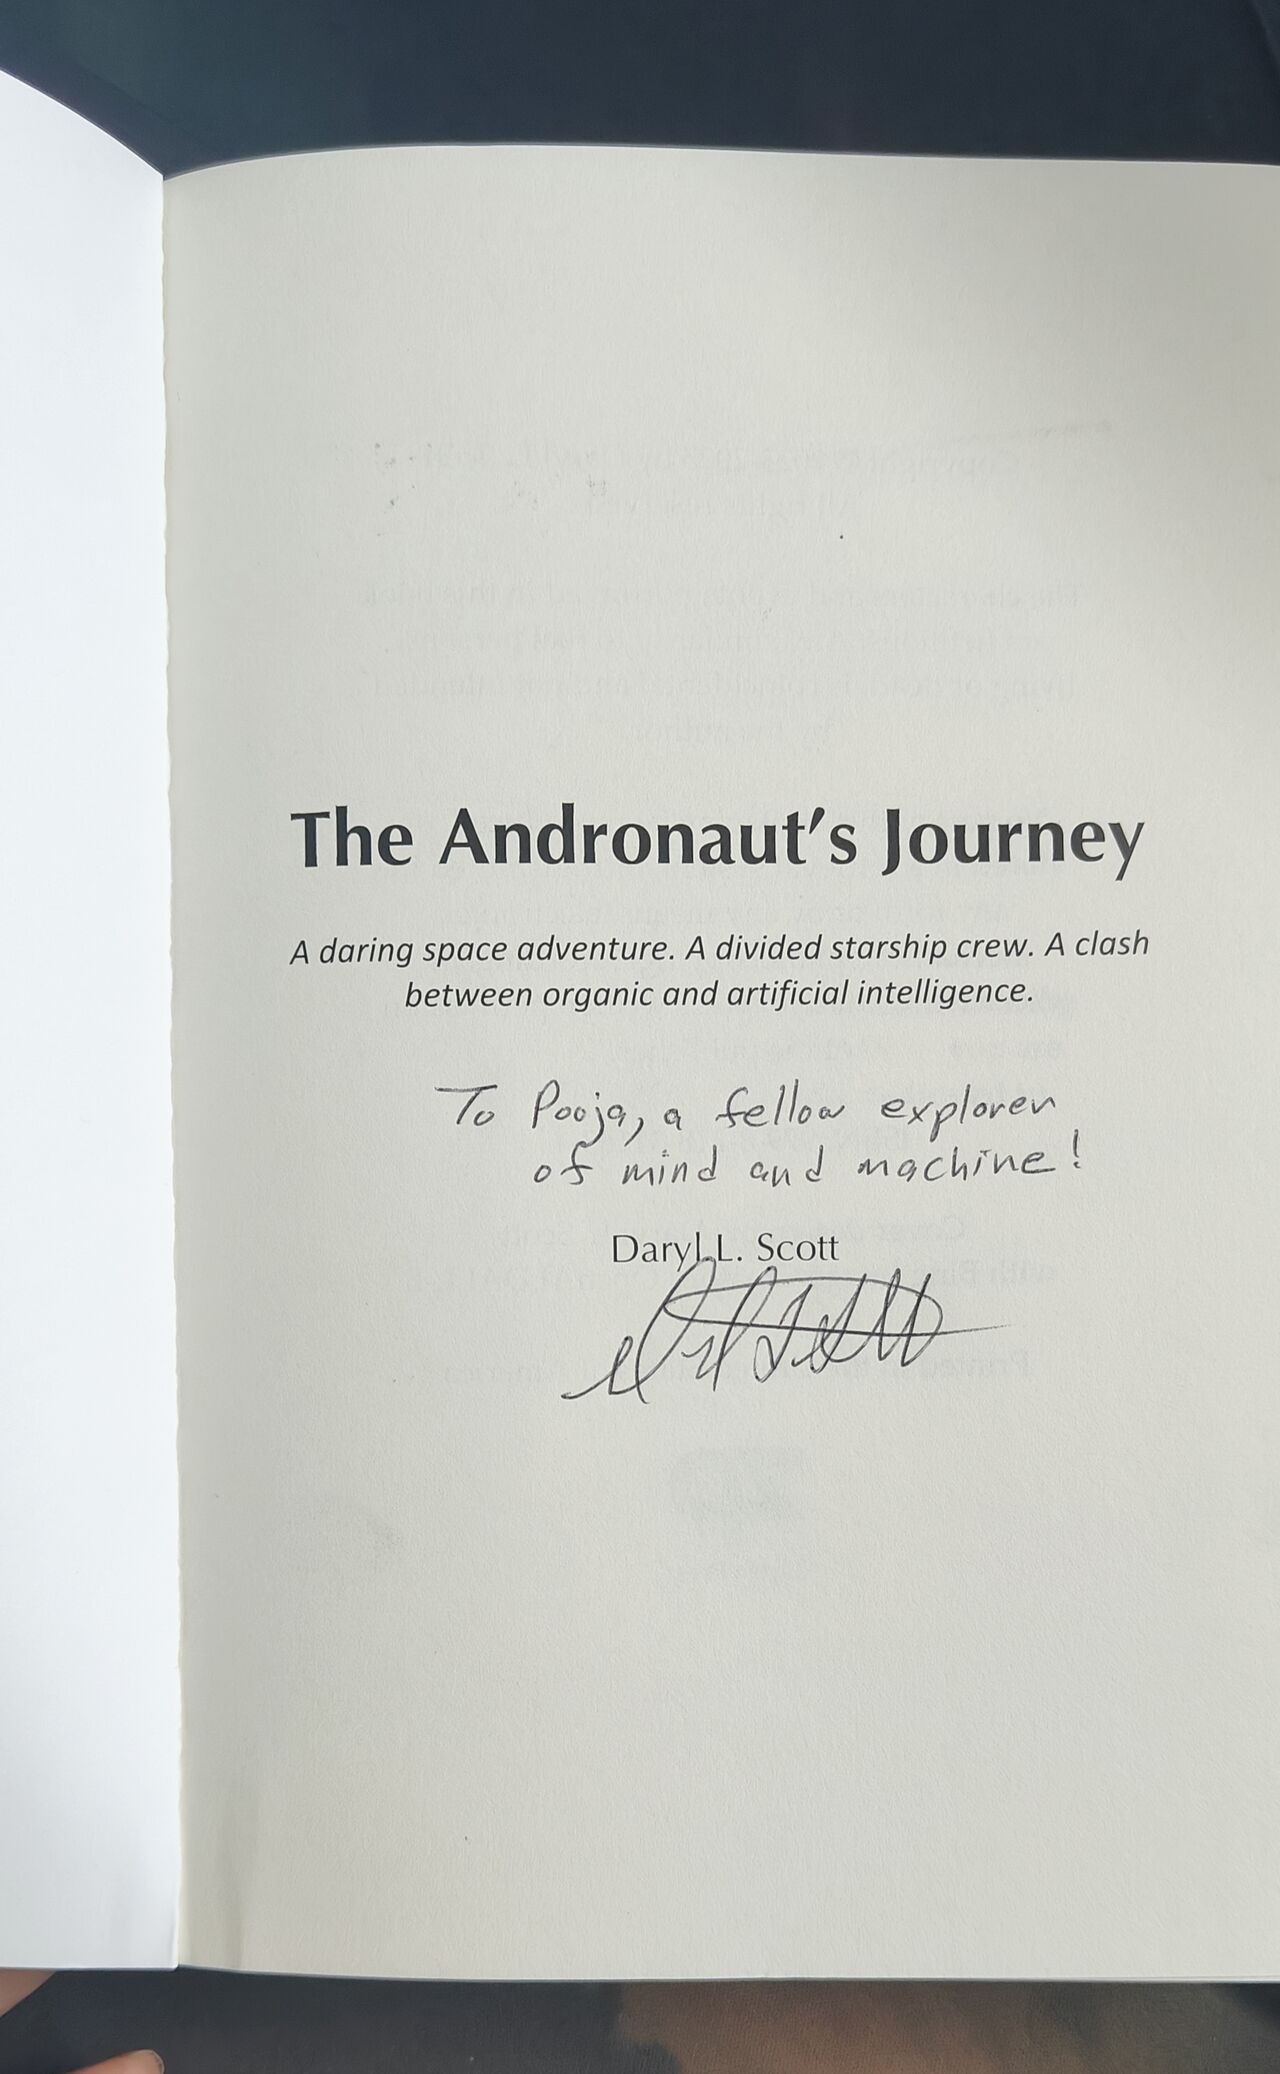 The Andronaut's Journey
A daring space adventure. A divided starship crew. A clash
between organic and artificial intelligence.
To Pooja, a fellow explorer
of mind and machine!
Daryl L. Scott